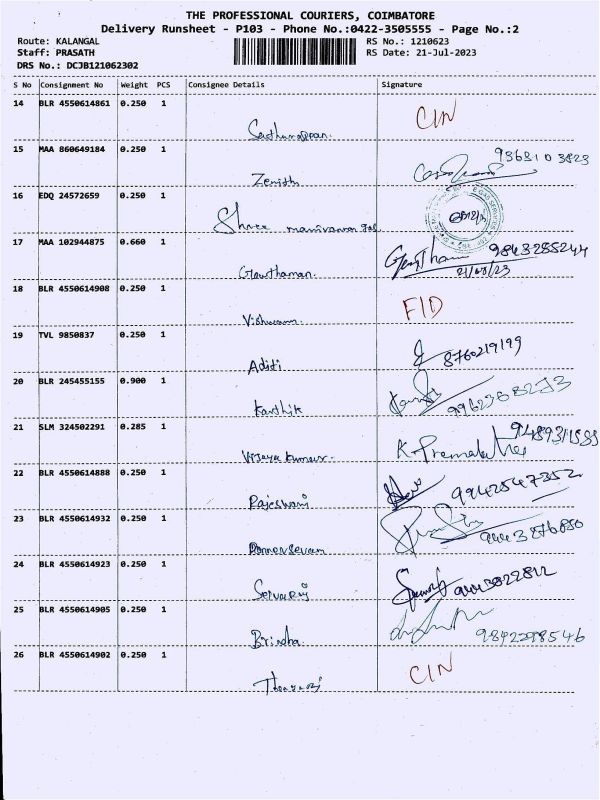 THE PROFESSIONAL COURIERS, COIMBATORE
Delivery Runsheet - P103 - Phone No.:0422-3505555 - Page No.:2
Route: KALANGAL RS No.: 1210623
Staff: PRASATH RS Date: 21-Jul-2023
DRS No.: DCJB121062302
S No Consignment No Weight PCS Consignee Details Signature
14 BLR 4550614861 0.250 1 CIN
15 MAA 860649184 0.250 1 Zenith
16 EDQ 24572659 0.250 1 Shree
17 MAA 102944875 0.660 1 Gowthaman Gowtham 9843285244
18 BLR 4550614908 0.250 1 FID
19 TVL 9850837 0.250 1 Aditi 8760219199
20 BLR 245455155 0.900 1 Karthik
21 SLM 324502291 0.285 1 Vijaya Kumar K. Premalatha
22 BLR 4550614888 0.250 1 Rajeswari 9942547352
23 BLR 4550614932 0.250 1 9443276850
24 BLR 4550614923 0.250 1 Selvaraj
25 BLR 4550614905 0.250 1 Brindha
26 BLR 4550614902 0.250 1 CIN